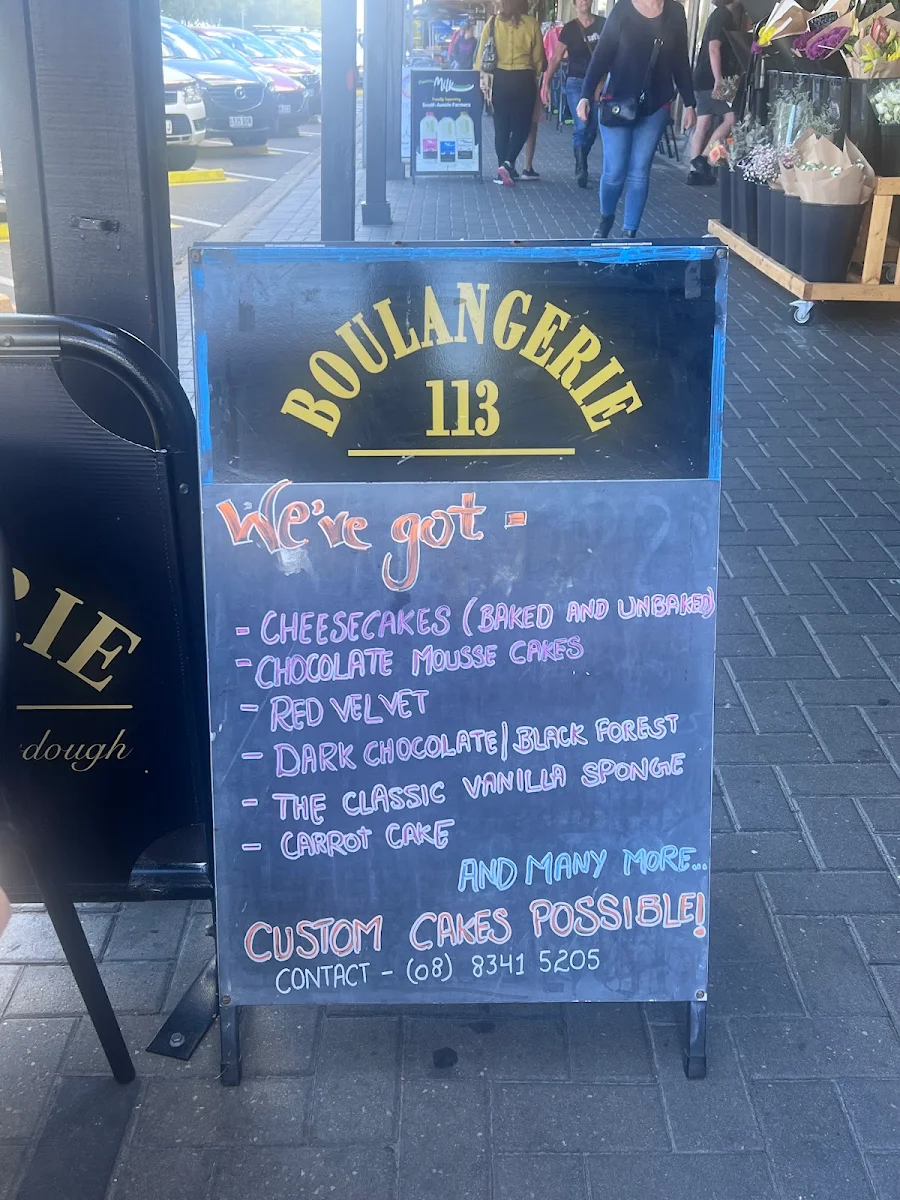 Milk
South Aussie Farmers
BOULANGERIE
113
We've got -
- CHEESECAKES (BAKED AND UNBAKED)
- CHOCOLATE MOUSSE CAKES
- RED VELVET
- DARK CHOCOLATE|BLACK FOREST
- THE CLASSIC VANILLA SPONGE
- CARROT CAKE
AND MANY MORE...
CUSTOM CAKES POSSIBLE!
CONTACT - (08) 8341 5205
RIE
dough